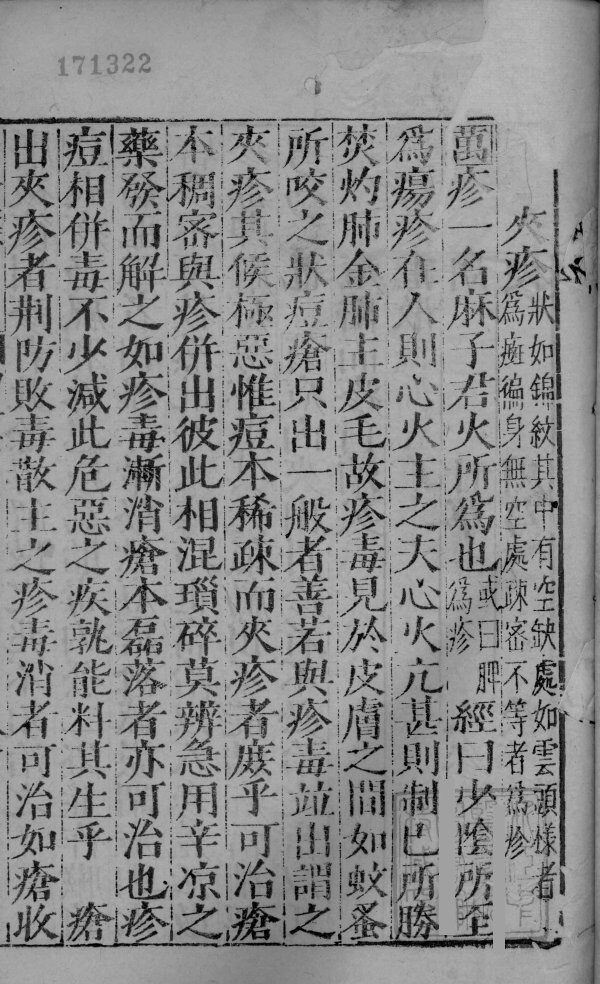 171322
夾疹 狀如錦紋其中有空缺處如雲頭樣者
爲痲徧身無空處疎密不等者爲疹
萬疹一名麻子君火所爲也 或曰脾
爲疹 經曰少陰所至
爲瘍疹在人則心火主之夫心火亢甚則制己所勝
焚灼肺金肺主皮毛故疹毒見於皮膚之間如蚊蚤
所咬之狀痘瘡只出一般者善若與疹毒竝出謂之
夾疹其候極惡惟痘本稀疎而夾疹者庶乎可治瘡
本稠密與疹併出彼此相混瑣碎莫辨急用辛凉之
藥發而解之如疹毒漸消瘡本磊落者亦可治也疹
痘相併毒不少減此危惡之疾孰能料其生乎 瘡
出夾疹者荆防敗毒散主之疹毒消者可治如瘡收